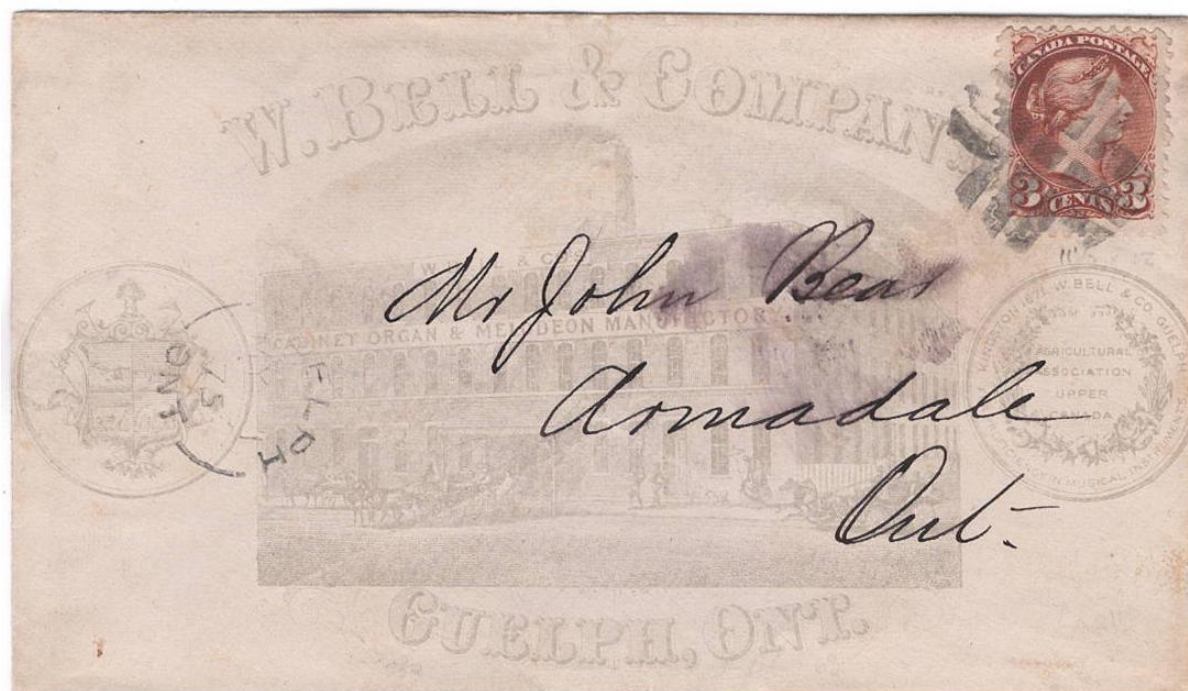 W. BELL & COMPANY
CANADA POSTAGE
3 CENTS 3
W. & CO'S
CABINET ORGAN & MELODEON MANUFACTORY
Mr John Bear
Armadale
Ont.
ONT
KINGSTON 1871 W. BELL & CO. GUELPH
AGRICULTURAL
ASSOCIATION
UPPER
CANADA
IN MUSICAL INSTRUMENTS
GUELPH, ONT.